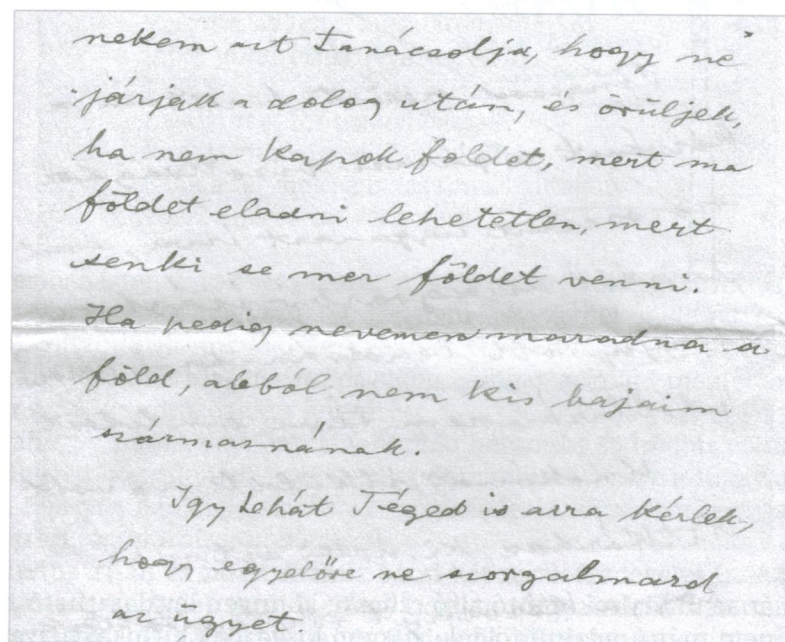 nekem azt tanácsolja, hogy ne
járjak a dolog után, és örüljek,
ha nem kapok földet, mert ma
földet eladni lehetetlen, mert
senki se mer földet venni.
Ha pedig nevemen maradna a
föld, abból nem kis bajaim
származnának.
Igy tehát Téged is arra kérlek,
hogy egyelőre ne szorgalmazd
az ügyet